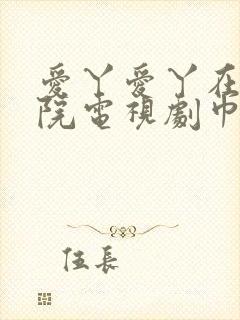 愛丫愛丫在
院電視劇巾
伍長